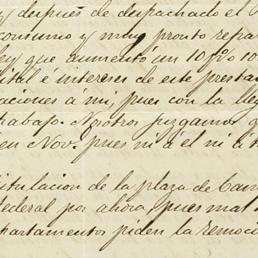 y despues de despachado el
consumo y muy pronto repa
ley que aumentó un 10 p% 10
ital e interes de este prestam
aciones á mi, pues con la lleg
trabajo. Nosotros juzgamos q
en Nov. pues ni á él ni á
itulacion de la plaza de Cam
federal por ahora, pues mal
partamentos piden la remoci